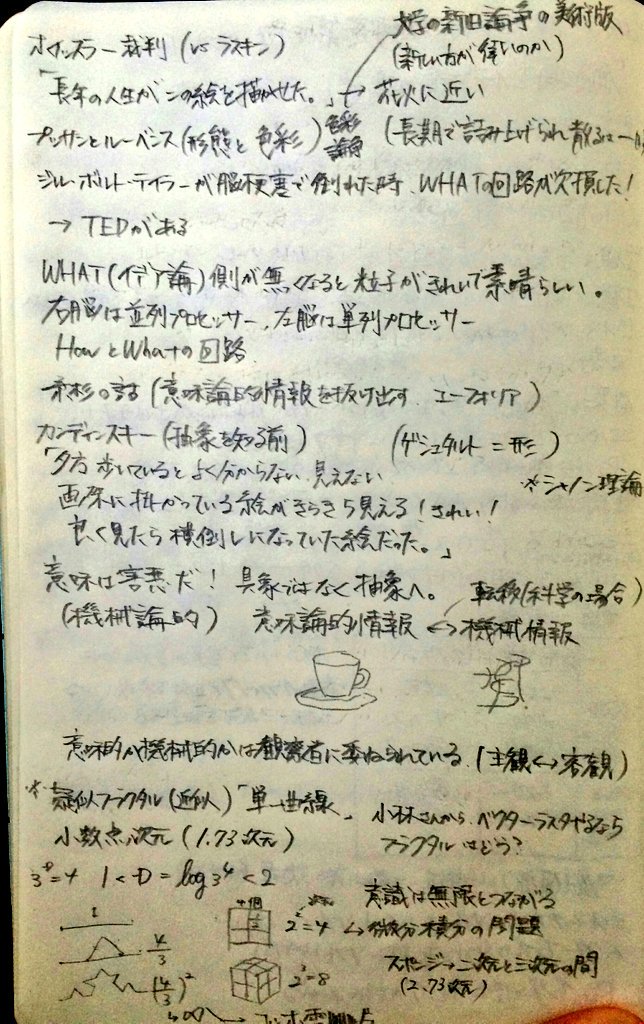 大学の新旧論争の美術版
ホイッスラー裁判 (vs ラスキン)
(新しい方が偉いのか)
「長年の人生がこの絵を描かせた。」
花火に近い
プッサンとルーベンス (形態と色彩) 色彩論争
(長期で積み上げられ散る
ジル・ボルト・テイラーが脳梗塞で倒れた時、WHATの回路が欠損した!
→ TEDがある
WHAT (イデア論) 側が無くなると粒子がきれいで素晴らしい。
右脳は並列プロセッサー、左脳は単列プロセッサー
HowとWhatの回路
の話 (意味論的情報を抜け出す エーフォリア)
カンディンスキー (抽象を知る前)
(ゲシュタルト = 形)
「夕方歩いているとよく分からない見えない
※シャノン理論
画床に掛かっている絵がきらきら見える! きれい!
良く見たら横倒しになっていた絵だった。」
意味は害悪だ! 具象ではなく抽象へ。
転移(科学の場合)
(機械論的)
意味論的情報 ↔ 機械情報
意味的か機械的かは観察者に委ねられている。(主観↔客観)
※疑似フラクタル (近似) 「単一曲線」
小林さんから、ベクターラスタやるなら
フラクタルはどう?
小数点次元 (1.73次元)
3ᴰ=4 1 < D = log 3⁴ < 2
意識は無限とつながる
↳ 微分積分の問題
1
4個
2²=4
4/3
(4/3)²
2³=8
スポンジ→二次元と三次元の間
(2.73次元)
↳ ∞ →